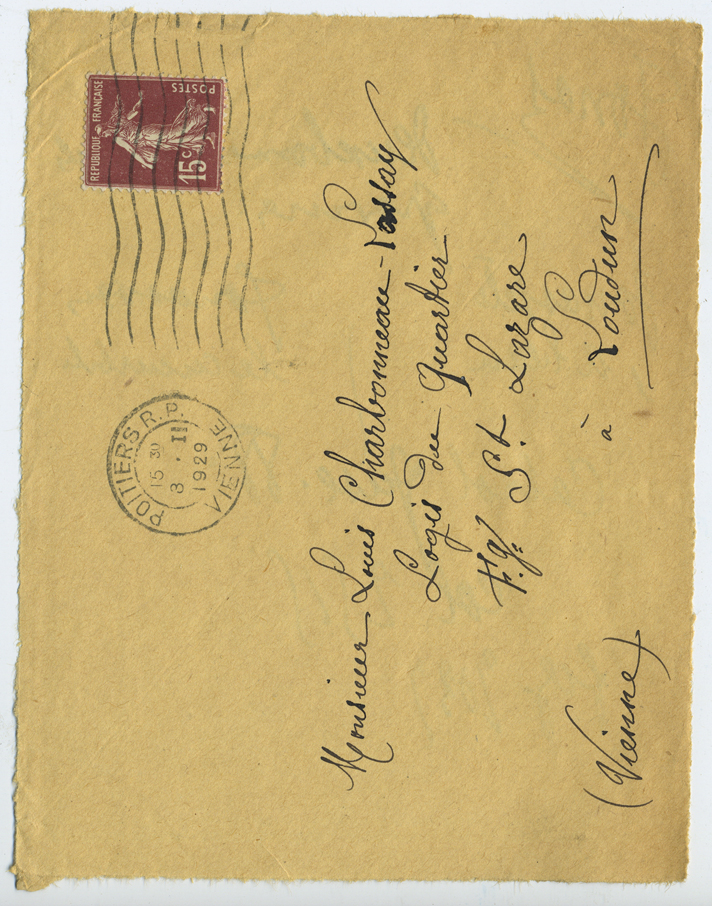 RÉPUBLIQUE FRANÇAISE
POSTES
15c
POITIERS R.P.
15 30
8 . II
1929
VIENNE
Monsieur Louis Charbonneau-Lassay
Logis du Quartier
F.g. St Lazare
à Loudun
(Vienne)